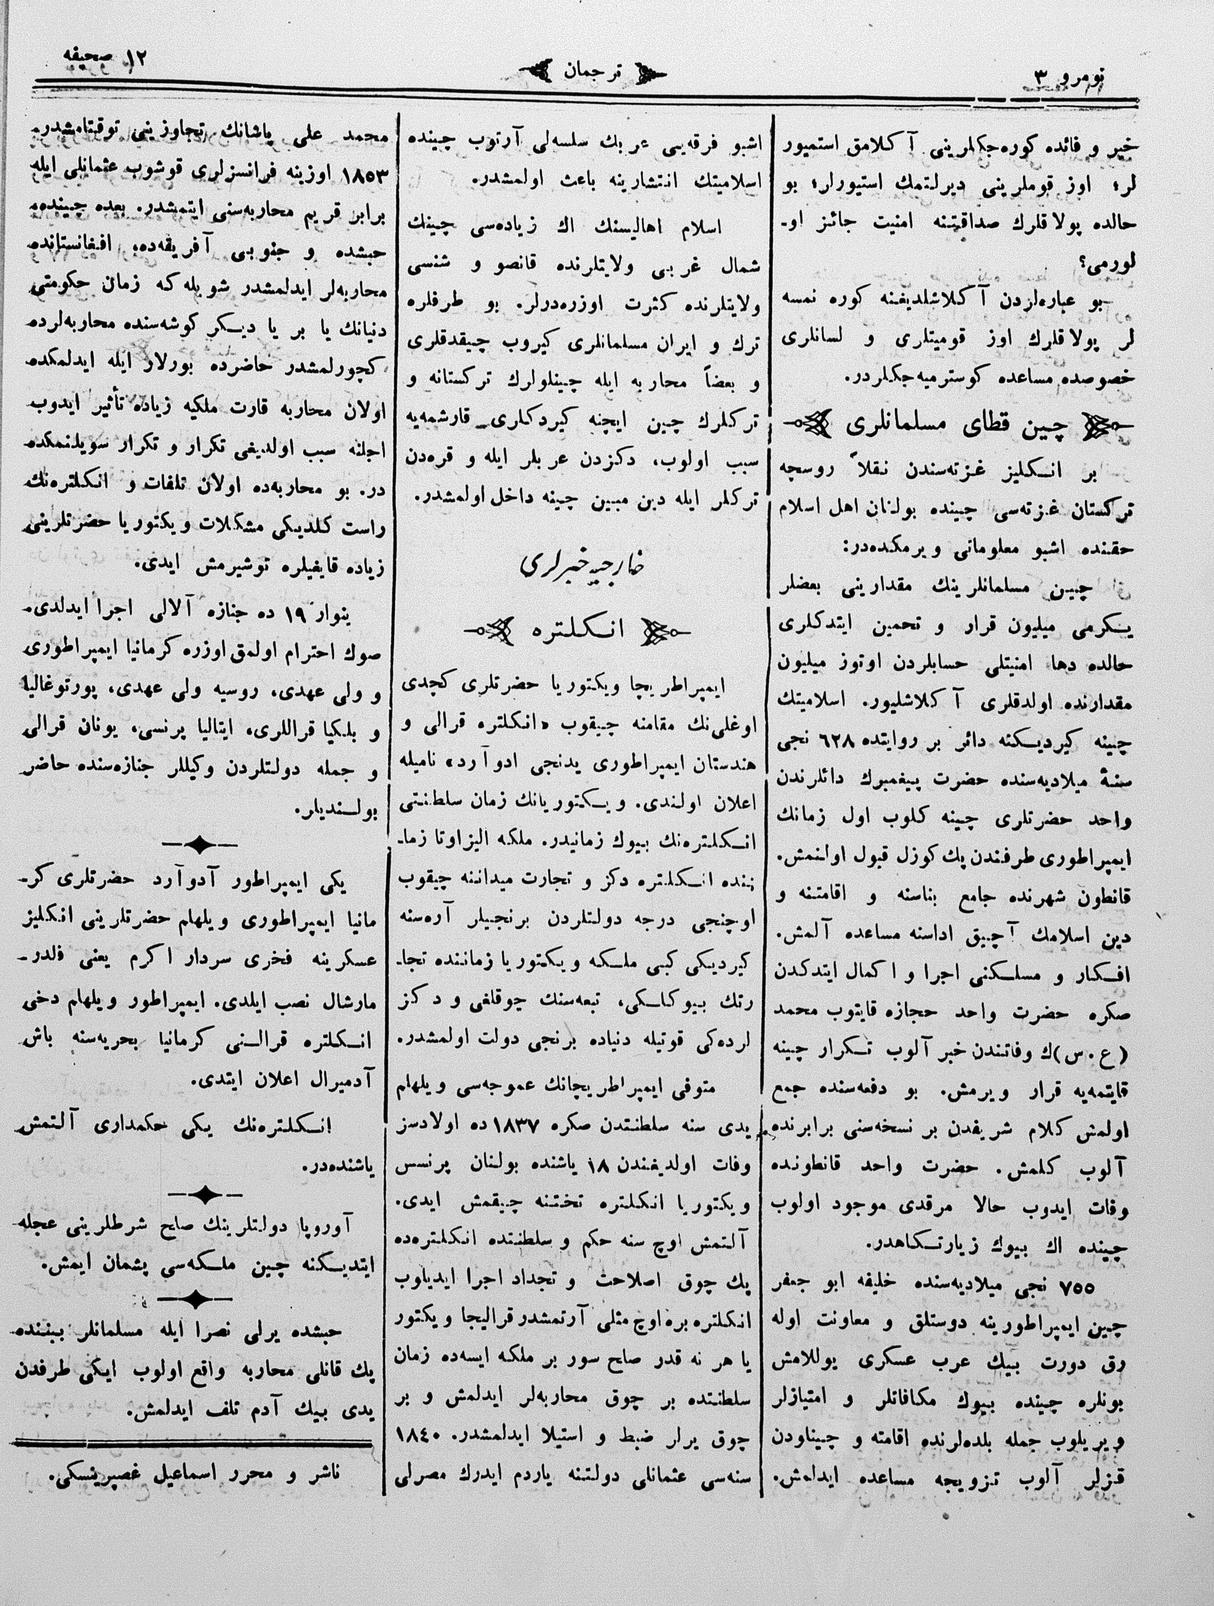 نومرو ٣
ترجمان
١٢ صحیفه
خیر و فائده کوره‌جکلرینی آکلامق استمیور
لر؛ اوز قوملرینی دیرلتمك استیورلر؛ بو
حالده پولاقلرك صداقیتنه امنیت جائز او-
لورمی؟
بو عباره‌لردن آکلاشلدیغنه کوره نمسه
لر پولاقلرك اوز قومیتلری و لسانلری
خصوصده مساعده کوسترمیه‌جکلردر.
چین قطای مسلمانلری
بر انکلیز غزته‌سندن نقلاً روسچه
ترکستان غزته‌سی چینده بولنان اهل اسلام
حقنده اشبو معلوماتی ویرمکده‌در:
چین مسلمانلرینك مقدارینی بعضلر
یکرمی میلیون قرار و تحمین ایتدکلری
حالده دها امنیتلی حسابلردن اوتوز میلیون
مقدارنده اولدقلری آکلاشلیور. اسلامیتك
چینه کیردیکنه دائر بر روایتده ٦٢٨ نجی
سنهٔ میلادیه‌سنده حضرت پیغمبرك دائلرندن
واحد حضرتلری چینه کلوب اول زمانك
ایمپراطوری طرفندن پك کوزل قبول اولنمش.
قانطون شهرنده جامع بناسنه و اقامتنه و
دین اسلامك آچیق اداسنه مساعده آلمش.
افکار و مسلکنی اجرا و اکمال ایتدکدن
صکره حضرت واحد حجازه قایتوب محمد
(ع.س)ك وفاتندن خبر آلوب تکرار چینه
قایتمه‌یه قرار ویرمش. بو دفعه‌سنده جمع
اولمش کلام شریفدن بر نسخه‌سنی برابرنده
آلوب کلمش. حضرت واحد قانطونده
وفات ایدوب حالا مرقدی موجود اولوب
چینده اك بیوك زیارتکاهدر.
٧٥٥ نجی میلادیه‌سنده خلیفه ابو جعفر
چین ایمپراطورینه دوستلق و معاونت اوله
رق دورت بیك عرب عسکری یوللامش
بونلره چینده بیوك مکافاتلر و امتیازلر
ویریلوب جمله بلده‌لرنده اقامته و چیناودن
قزلر آلوب تزویجه مساعده ایدلمش.
اشبو فرقه‌یی عربك سلسه‌لی آرتوب چینده
اسلامیتك انتشارینه باعث اولمشدر.
اسلام اهالیسنك اك زیاده‌سی چینك
شمال غربی ولایتلرنده قانصو و شنسی
ولایتلرنده کثرت اوزره‌درلر. بو طرفلره
ترك و ایران مسلمانلری کیروب چیقدقلری
و بعضاً محاربه ایله چینلولرك ترکستانه و
ترکلرك چین ایچنه کیردکلری قارشمه‌یه
سبب اولوب، دکزدن عربلر ایله و قره‌دن
ترکلر ایله دین مبین چینه داخل اولمشدر.
خارجیه خبرلری
انکلتره
ایمپراطریچا ویکتوریا حضرتلری کچدی
اوغلی‌نك مقامنه چیقوب «انکلتره قرالی و
هندستان ایمپراطوری یدنجی ادوآرد» نامیله
اعلان اولندی. ویکتوریانك زمان سلطنتی
انکلتره‌نك بیوك زمانیدر. ملکه الیزاوتا زما-
ننده انکلتره دکز و تجارت میداننه چیقوب
اوچنجی درجه دولتلردن برنجیلر آره‌سنه
کیردیکی کبی ملکه ویکتوریا زماننده تجا-
رتك بیوکلکی، تبعه‌سنك چوقلغی و دکز
لرده‌کی قوتیله دنیاده برنجی دولت اولمشدر.
متوفی ایمپراطریچانك عموجه‌سی ویلهام
یدی سنه سلطنتدن صکره ١٨٣٧ ده اولادسز
وفات اولدیغندن ١٨ یاشنده بولنان پرنسس
ویکتوریا انکلتره تختنه چیقمش ایدی.
آلتمش اوچ سنه حکم و سلطنتده انکلتره‌ده
پك چوق اصلاحت و تجداد اجرا ایدیلوب
انکلتره بره اوچ مثلی آرتمشدر قرالیجا ویکتور
یا هر نه قدر صلح سور بر ملکه ایسه‌ده زمان
سلطنتده بر چوق محاربه‌لر ایدلمش و بر
چوق یرلر ضبط و استیلا ایدلمشدر. ١٨٤٠
سنه‌سی عثمانلی دولتنه یاردم ایدرك مصرلی
محمد علی پاشانك تجاوزینی توقتامشدر.
١٨٥٣ اوزینه فرانسزلری قوشوب عثمانلی ایله
برابر قریم محاربه‌سنی ایتمشدر. بعده چینده،
حبشده و جنوبی آفریقه‌ده، افغانستانده
محاربه‌لر ایدلمشدر شویله که زمان حکومتی
دنیانك یا بر یا دیکر کوشه‌سنده محاربه‌لرده
کچورلمشدر حاضرده بورلار ایله ایدلمکده
اولان محاربه قارت ملکیه زیاده تأثیر ایدوب
اجلنه سبب اولدیغی تکرار و تکرار سویلنمکده
در. بو محاربه‌ده اولان تلفات و انکلتره‌نك
راست کلدیکی مشکلات ویکتوریا حضرتلرینی
زیاده قایغیلره توشیرمش ایدی.
ینوار ١٩ ده جنازه آلالی اجرا ایدلدی.
صوك احترام اولمق اوزره کرمانیا ایمپراطوری
و ولی عهدی، روسیه ولی عهدی، پورتوغالیا
و بلکیا قراللری، ایتالیا پرنسی، یونان قرالی
و جمله دولتلردن وکیللر جنازه‌سنده حاضر
بولندیلر.
یکی ایمپراطور آدوآرد حضرتلری کر-
مانیا ایمپراطوری ویلهام حضرتلرینی انکلیز
عسکرینه فخری سردار اکرم یعنی فلدر-
مارشال نصب ایلدی. ایمپراطور ویلهام دخی
انکلتره قرالنی کرمانیا بحریه‌سنه باش
آدمیرال اعلان ایتدی.
انکلتره‌نك یکی حکمداری آلتمش
یاشنده‌در.
آوروپا دولتلرینك صلح شرطلرینی عجله
ایتدیکنه چین ملکه‌سی پشمان ایمش.
حبشده یرلی نصرا ایله مسلمانلر بیننده
پك قانلی محاربه واقع اولوب ایکی طرفدن
یدی بیك آدم تلف ایدلمش.
ناشر و محرر اسماعیل غصپرینسکی.